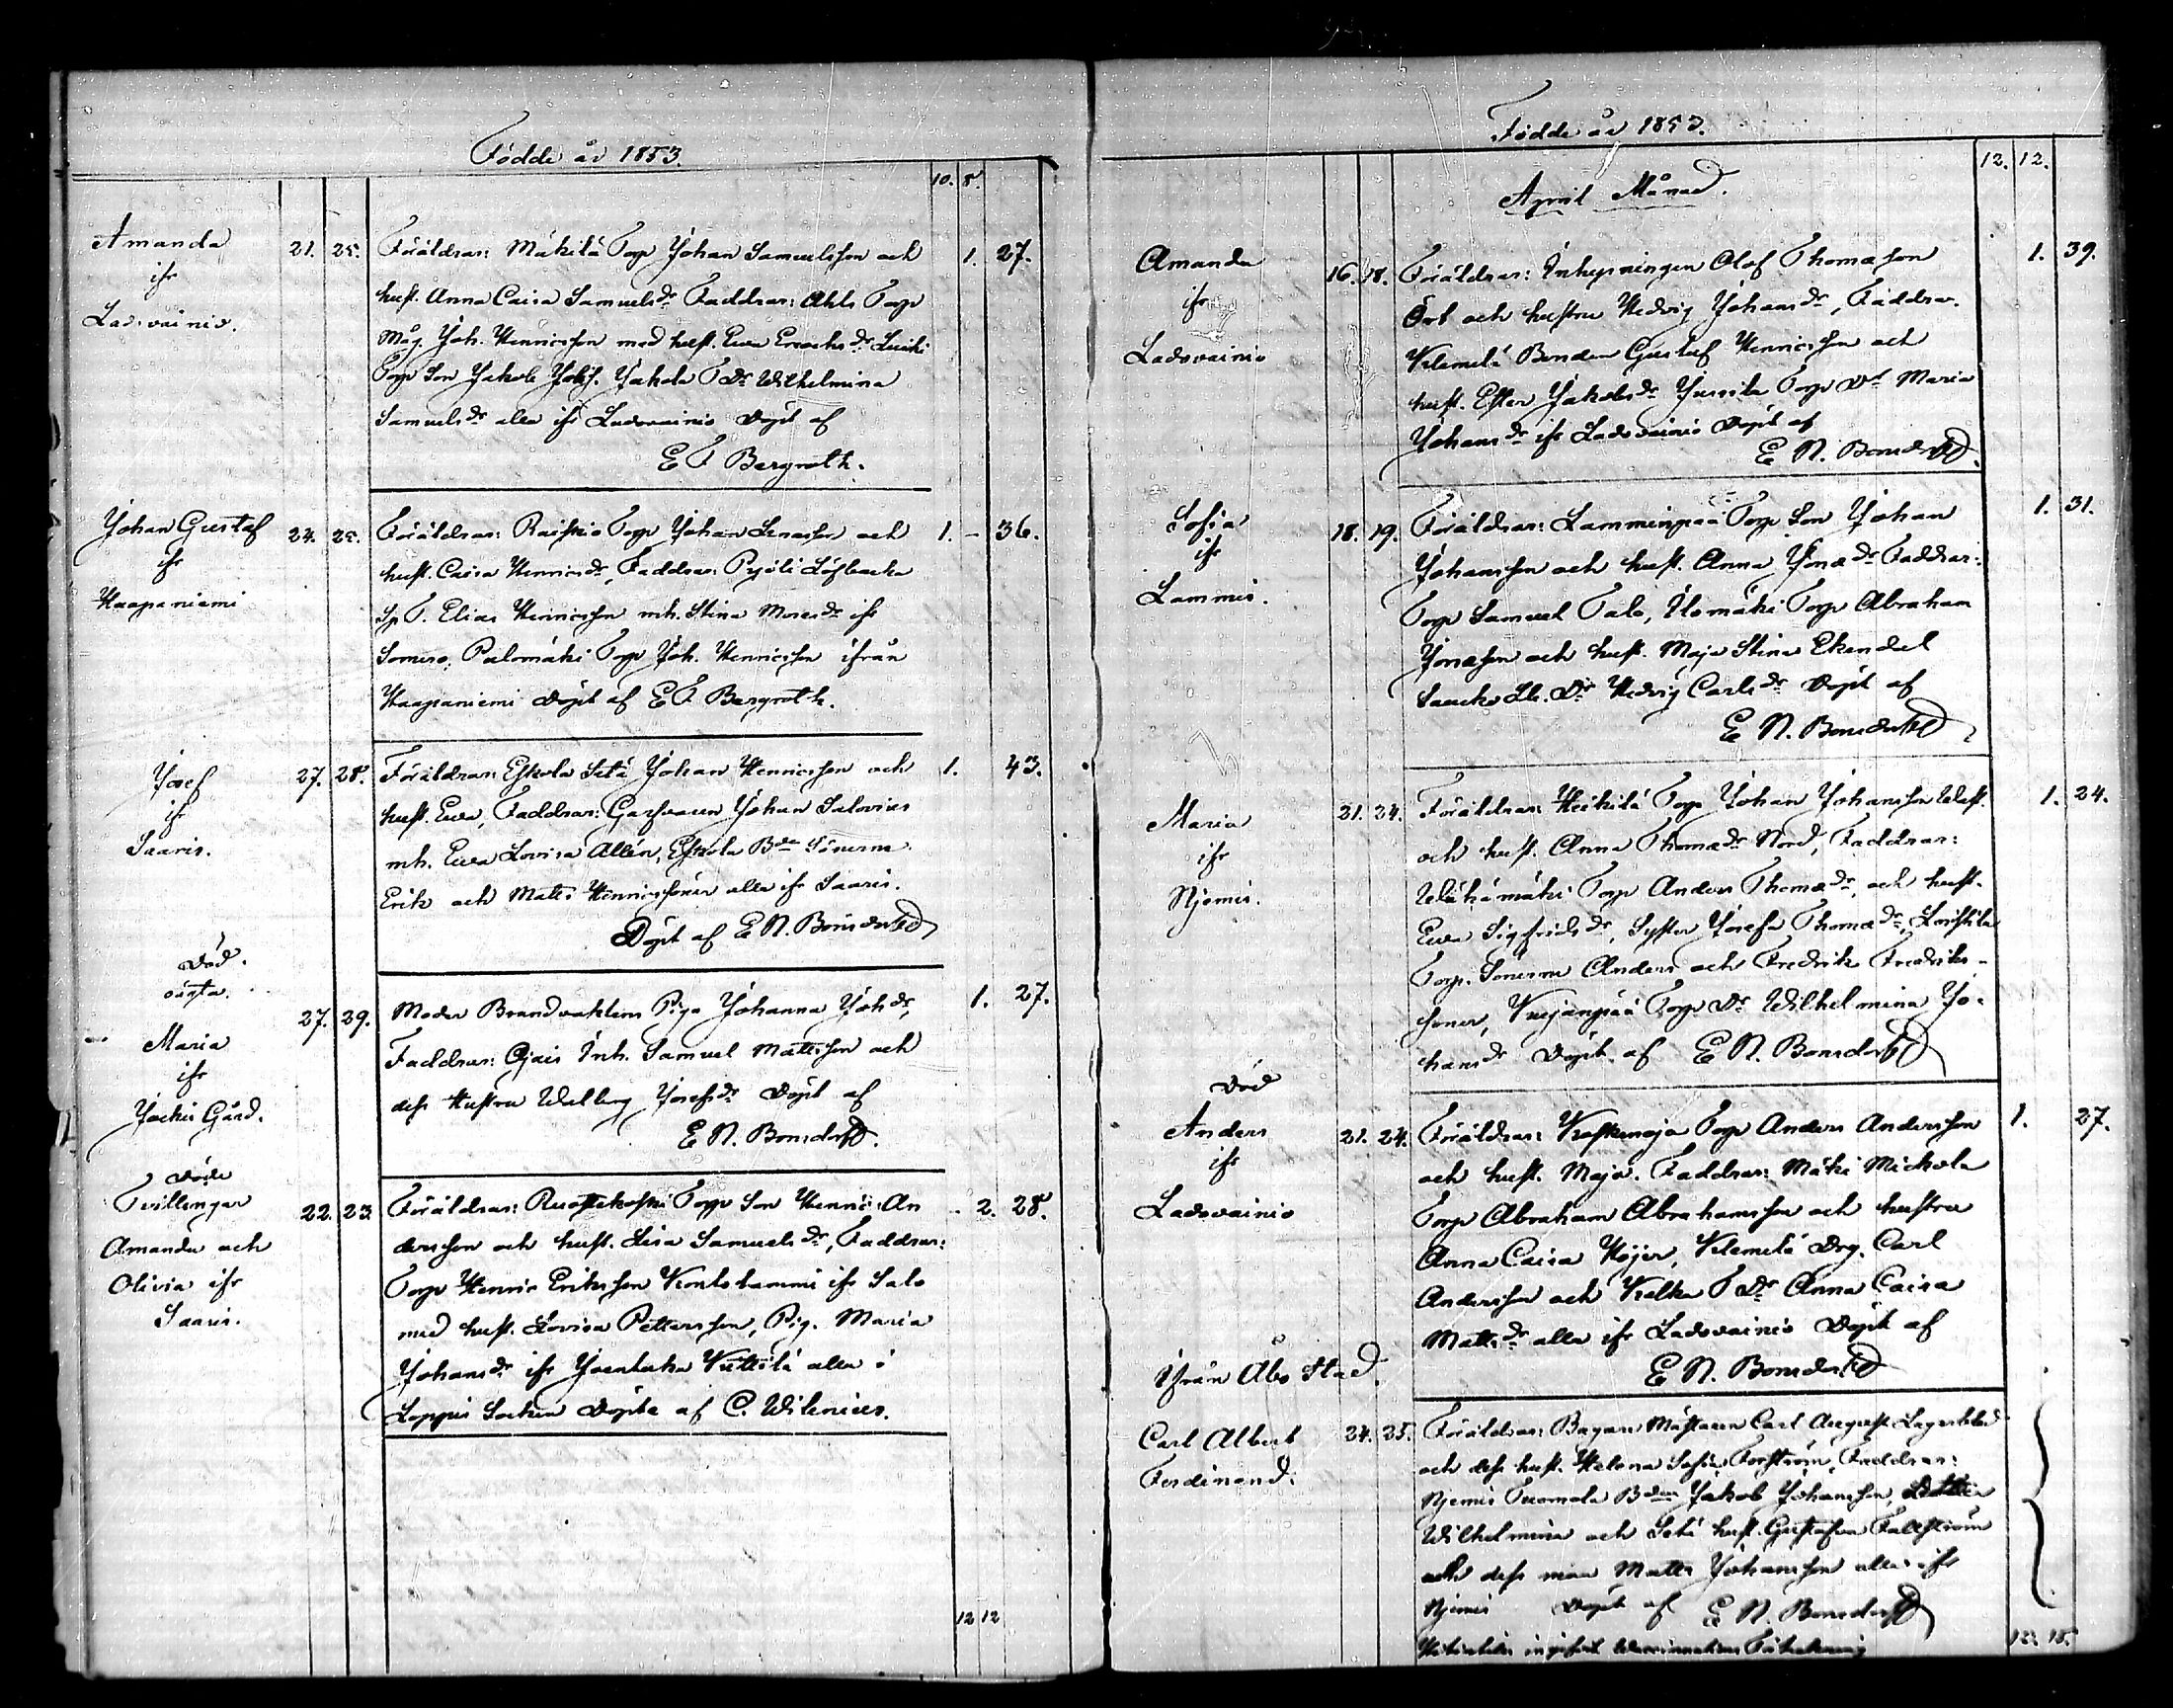 Födde år 1853.
10. 8.
Amanda
ifr
Ladovainio.
21. 25.
Föräldrar: Mäkilä Torp. Johan Samuelsson och
hust. Anna Caisa Samuelsdr Faddrar: Ahls Torp
Måg. Joh. Henricsson med hust. Eva Enochsdr
Torp Son Jakob Johs. T Dr Wilhelmina
Samuelsdr alla ifr Ladovainio Döpt af
E F Bergroth.
1. 27.
Johan Gustaf
ifr
Haapaniemi
24. 25.
Föräldrar: Raiskio Torp Johan och
hust. Caisa Henricsdr, Faddrar: Pyöli
Sp T. Elias Henricsson mh. Stina Mosesdr ifr
Somero, Palomäki Torp Joh. Henricsson ifrån
Haapaniemi Döpt af E F Bergroth.
1. - 36.
Josef
ifr
Saaris.
27. 28.
Föräldrar: Eskola Johan Henricsson och
hust. Eva, Faddrar: Garfvaren Johan Salovius
mh. Eva Lovisa Allén, Eskola Sönerna
Erik och Matts Henricssöner alla ifr Saaris.
Döpt af E N. Bonsdorff
1. 43.
Död.
oägta.
Maria
ifr
Jockis Gård.
27. 29.
Moder Brandvaktens Piga Johanna Johdr,
Faddrar: Ojais Inh. Samuel Mattsson och
dess Hustru Walborg Josefsdr Döpt af
E N. Bonsdorff.
1. 27.
Döde
Tvillingar
Amanda och
Olivia ifr
Saaris.
22. 23
Föräldrar: Ruostekoski Torp Son Henric An
dersson och hust. Lisa Samuelsdr, Faddrar:
Torp Henric Eriksson ifr Salo
med hust. Lovisa Pettersson, Pig. Maria
Johansdr ifr alla i
Loppis Socken Döpte af C. Wilenius.
- 2. 28.
12 12
Födde år 1853.
12. 12.
April Månad.
Amanda
ifr
Ladovainio
16. 18.
Föräldrar: Inhysningen Olof Thomasson
Ört och hustru Hedvig Johansdr, Faddrar.
Klemelä Bonden Gustaf Henricsson och
hust. Ester Jakobsdr Jussila Torp Dr Maria
Johansdr ifr Ladovainio Döpt af
E N. Bonsdorff.
1. 39.
Sofia
ifr
Lammis.
18. 19.
Föräldrar: Lamminpää Torp Son Johan
Johansson och hust. Anna Jonædr Faddrar:
Torp Samuel Talo, Ilomäki Torp Abraham
Jonæson och hust. Maja Stina Ekendal
Dr Hedvig Carlsdr Döpt af
E N. Bonsdorff
1. 31.
Maria
ifr
Njemis.
21. 24.
Föräldrar: Heikilä Torp Johan Johansson
och hust. Anna Thomædr Nord, Faddrar:
Torp Anders Thomædr, och hust.
Eva Sigfridsdr, Syster Josefa Thomædr,
Torp. Sönerna Anders och Fredrik Fredriks-
söner, Torp Dr Wilhelmina Jo-
hansdr Döpt af E N. Bonsdorff
1. 24.
Död
Anders
ifr
Ladovainio
21. 24.
Föräldrar: Torp Anders Andersson
och hust. Maja. Faddrar: Mäki Mickola
Torp Abraham Abrahamsson och hustru
Anna Caisa Höjer, Klemelä Drg. Carl
Andersson och T Dr Anna Caisa
Mattsdr alla ifr Ladovainio Döpt af
E N. Bonsdorff
1. 27.
Ifrån Åbo Stad.
Carl Albert
Ferdinand.
24. 25.
Föräldrar: Bagare Mästaren Carl August Lagerblad
och dess hust. Helena Sofia Forström, Faddrar:
Njemis Tuomola Jakob Johansson,
Wilhelmina och hust. Gustafva
och dess man Matts Johansson alla ifr
Njemis Döpt af E N. Bonsdorff
12. 15.